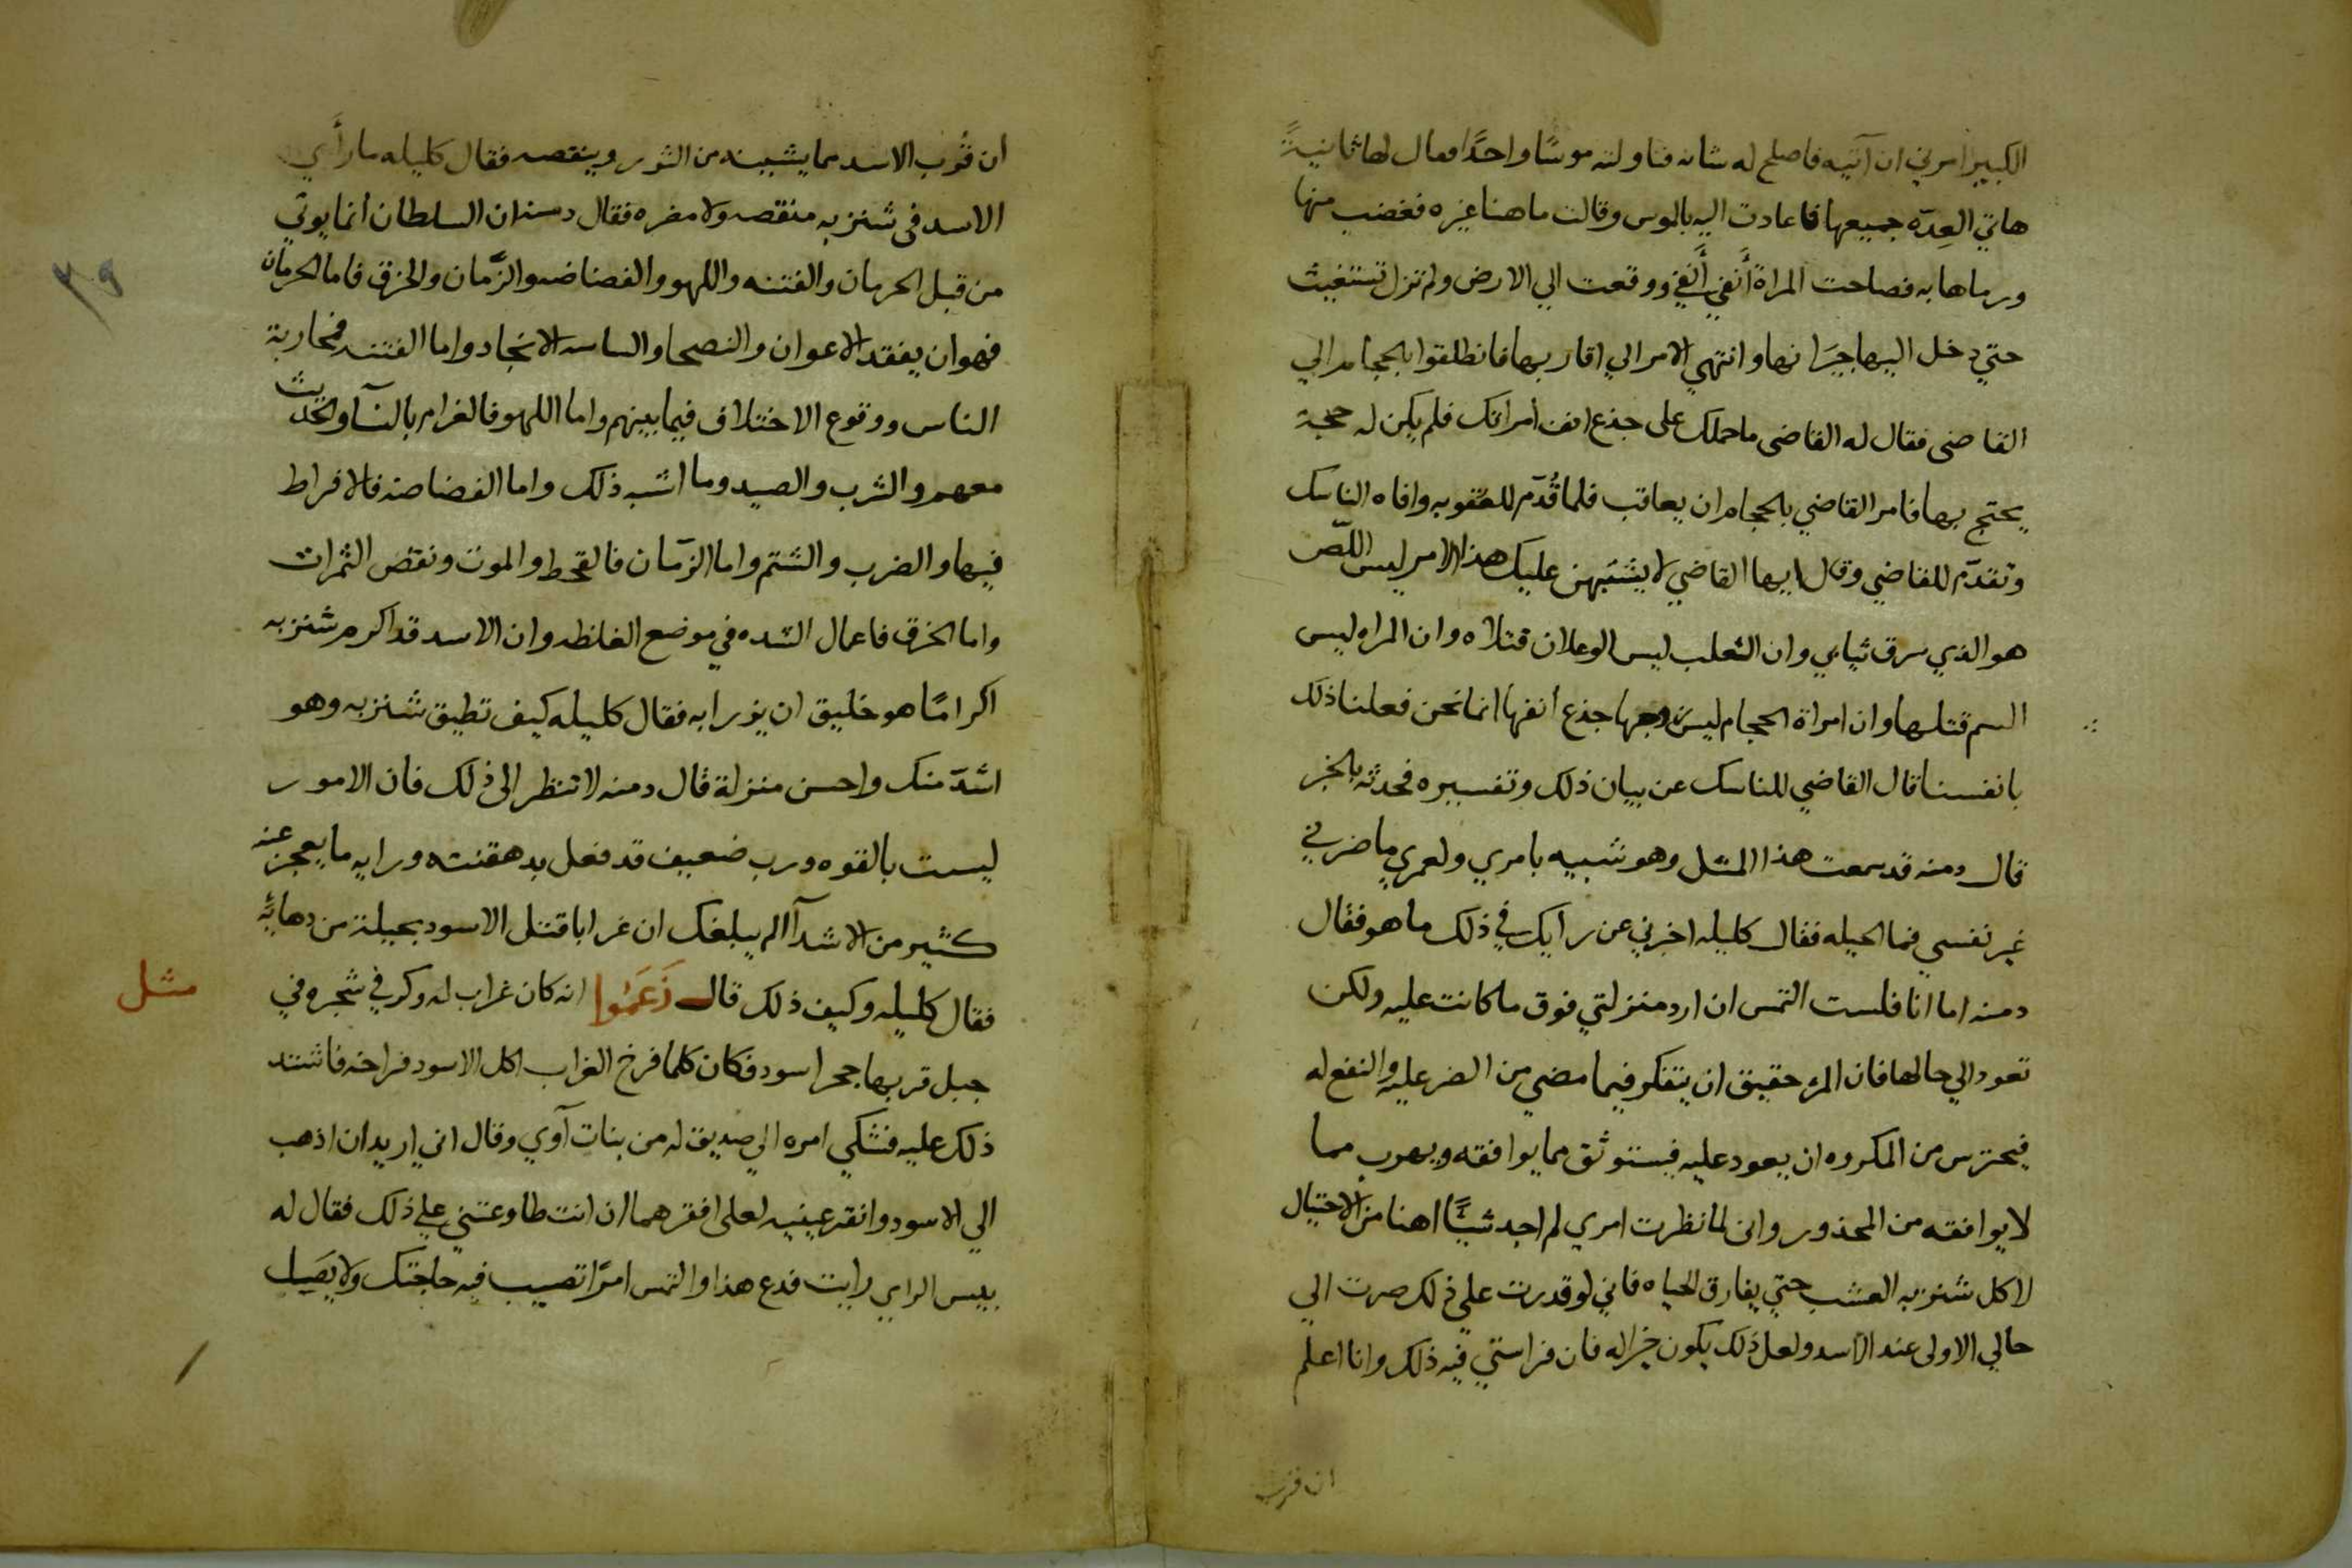 الكبير امرني ان آتيه فاصلح له شانه فناولته موسًا واحدًا فقال لها ثانيةً
هاتي العِدّه جميعها فاعادت اليه بالموس وقالت ما هنا غيره فغضب منها
ورماها به فصاحت المراة أنفي أنفي ووقعت الي الارض ولم تزل تستغيث
حتي دخل اليها جيرانها وانتهي الامر الي اقاربها فانطلقوا بالحجام الي
القاضى فقال له القاضى ما حملك على جذع انف امراتك فلم يكن له حجة
يحتج بها فامر القاضي بالحجام ان يعاقب فلما قُدّم للعقوبه وافاه الناسك
وتقدّم للقاضي وقال ايها القاضي لا يشتبهن عليك هذا الامر ليس اللّص
هو الذي سرق ثيابي وان الثعلب ليس الوعلان قتلاه وان المراه ليس
السم قتلها وان امراة الحجام ليس زوجها جذع انفها انما نحن فعلنا ذلك
بانفسنا قال القاضي للناسك عن بيان ذلك وتفسيره فحدثه بالخبر
قال دمنه قد سمعت هذا المثل وهو شبيه بامري ولعمري ما ضرني
غير نفسي فما الحيله فقال كليله اخبرني عن رايك في ذلك ما هو فقال
دمنه اما انا فلست التمس ان ارد منزلتي فوق ما كانت عليه ولكن
تعود الي حالها فان المرء حقيق ان يتفكر فيما مضي من الضر عليه والنفع له
فيحترس من المكروه ان يعود عليه فيستوثق مما يوافقه ويهرب مما
لا يوافقه من المحذور واني لما نظرت امري لم اجد شيًّا اهنا من الاحتيال
لاكل شنزبه العشب حتي يفارق الحياه فاني لو قدرت علي ذلك صرت الي
حالي الاولى عند الاسد ولعل ذلك يكون خيرا له فان فراستي فيه ذلك وانا اعلم
ان قرب
ان قُرب الاسد مما يشينه من الثور وينقصه فقال كليله ما رأَي
الاسد في شنزبه منقصه ولا مضره فقال دمنه ان السلطان انما يوتي
من قبل الحرمان والفتنه واللهو والفضاضه والزَّمان والخرق فاما الحرمان
فهو ان يفقد الاعوان والنصحا والساسه الانجاد واما الفتنه فمحاربة
الناس ووقوع الاختلاف فيما بينهم واما اللهو فالغرام بالنسآ والحديث
معهم والشرب والصيد وما اشبه ذلك واما الفضاضه فالافراط
فيها والضرب والشتم واما الزمان فالقحط والموت ونقص الثمرات
واما الخرق فاعمال الشده في موضع الغلظه وان الاسد قد اكرم شنزبه
اكرامًا هو خليق ان يزرا به فقال كليله كيف تطيق شنزبه وهو
اشدّ منك واحسن منزلة قال دمنه لا تنظر الى ذلك فان الامور
ليست بالقوه ورب ضعيف قد فعل بدهقنته ورايه ما يعجز عنه
كثير من الاشدآ الم يبلغك ان غرابا قتل الاسود بحيلة من دهائه
فقال كليله وكيف ذلك قال زَعَمُوا انه كان غراب له وكر في شجره في
مثل
جبل قربها جحر اسود فكان كلما فرخ الغراب اكل الاسود فراخه فاشتد
ذلك عليه فشكي امره الي صديق له من بنات آوي وقال اني اريد ان اذهب
الي الاسود وانقر عينيه لعلى افقرهما ان انت طاوعتني علي ذلك فقال له
بيس الراي رايت فدع هذا والتمس امرًا تصيب فيه حاجتك ولا يَصَل
٣٩